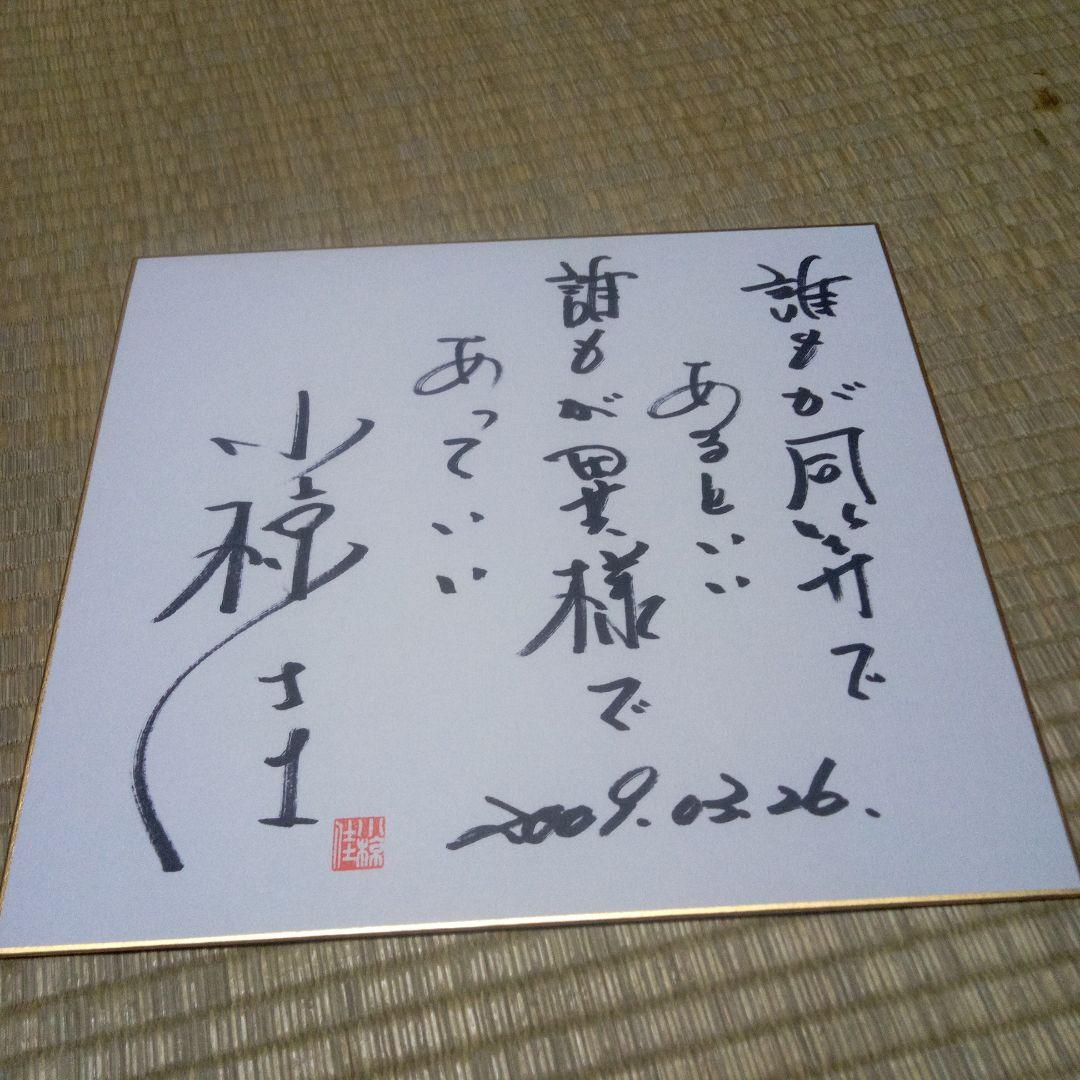 誰もが同等で
あるといい
誰もが異様で
あっていい
小椋佳
2009.03.26.
小椋佳